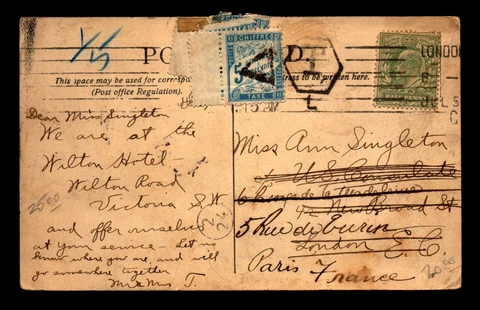 1/5
PO
D.
This space may be used for corresp
dress to be written here.
(Post office Regulation).
CHIFFRE
5
TAXE
T
L
LONDON
JUL 5
Dear Miss Singleton
We are at the
Wilton Hotel—
Wilton Road
Victoria S.W.
and offer ourselves
at your service— Let us
know where you are, and will
go somewhere together
Mr & Mrs T.
2500
Miss Ann Singleton
U.S. Consulate
6 de la Madeleine
New Broad St
5 Rue de
London E.C.
Paris France